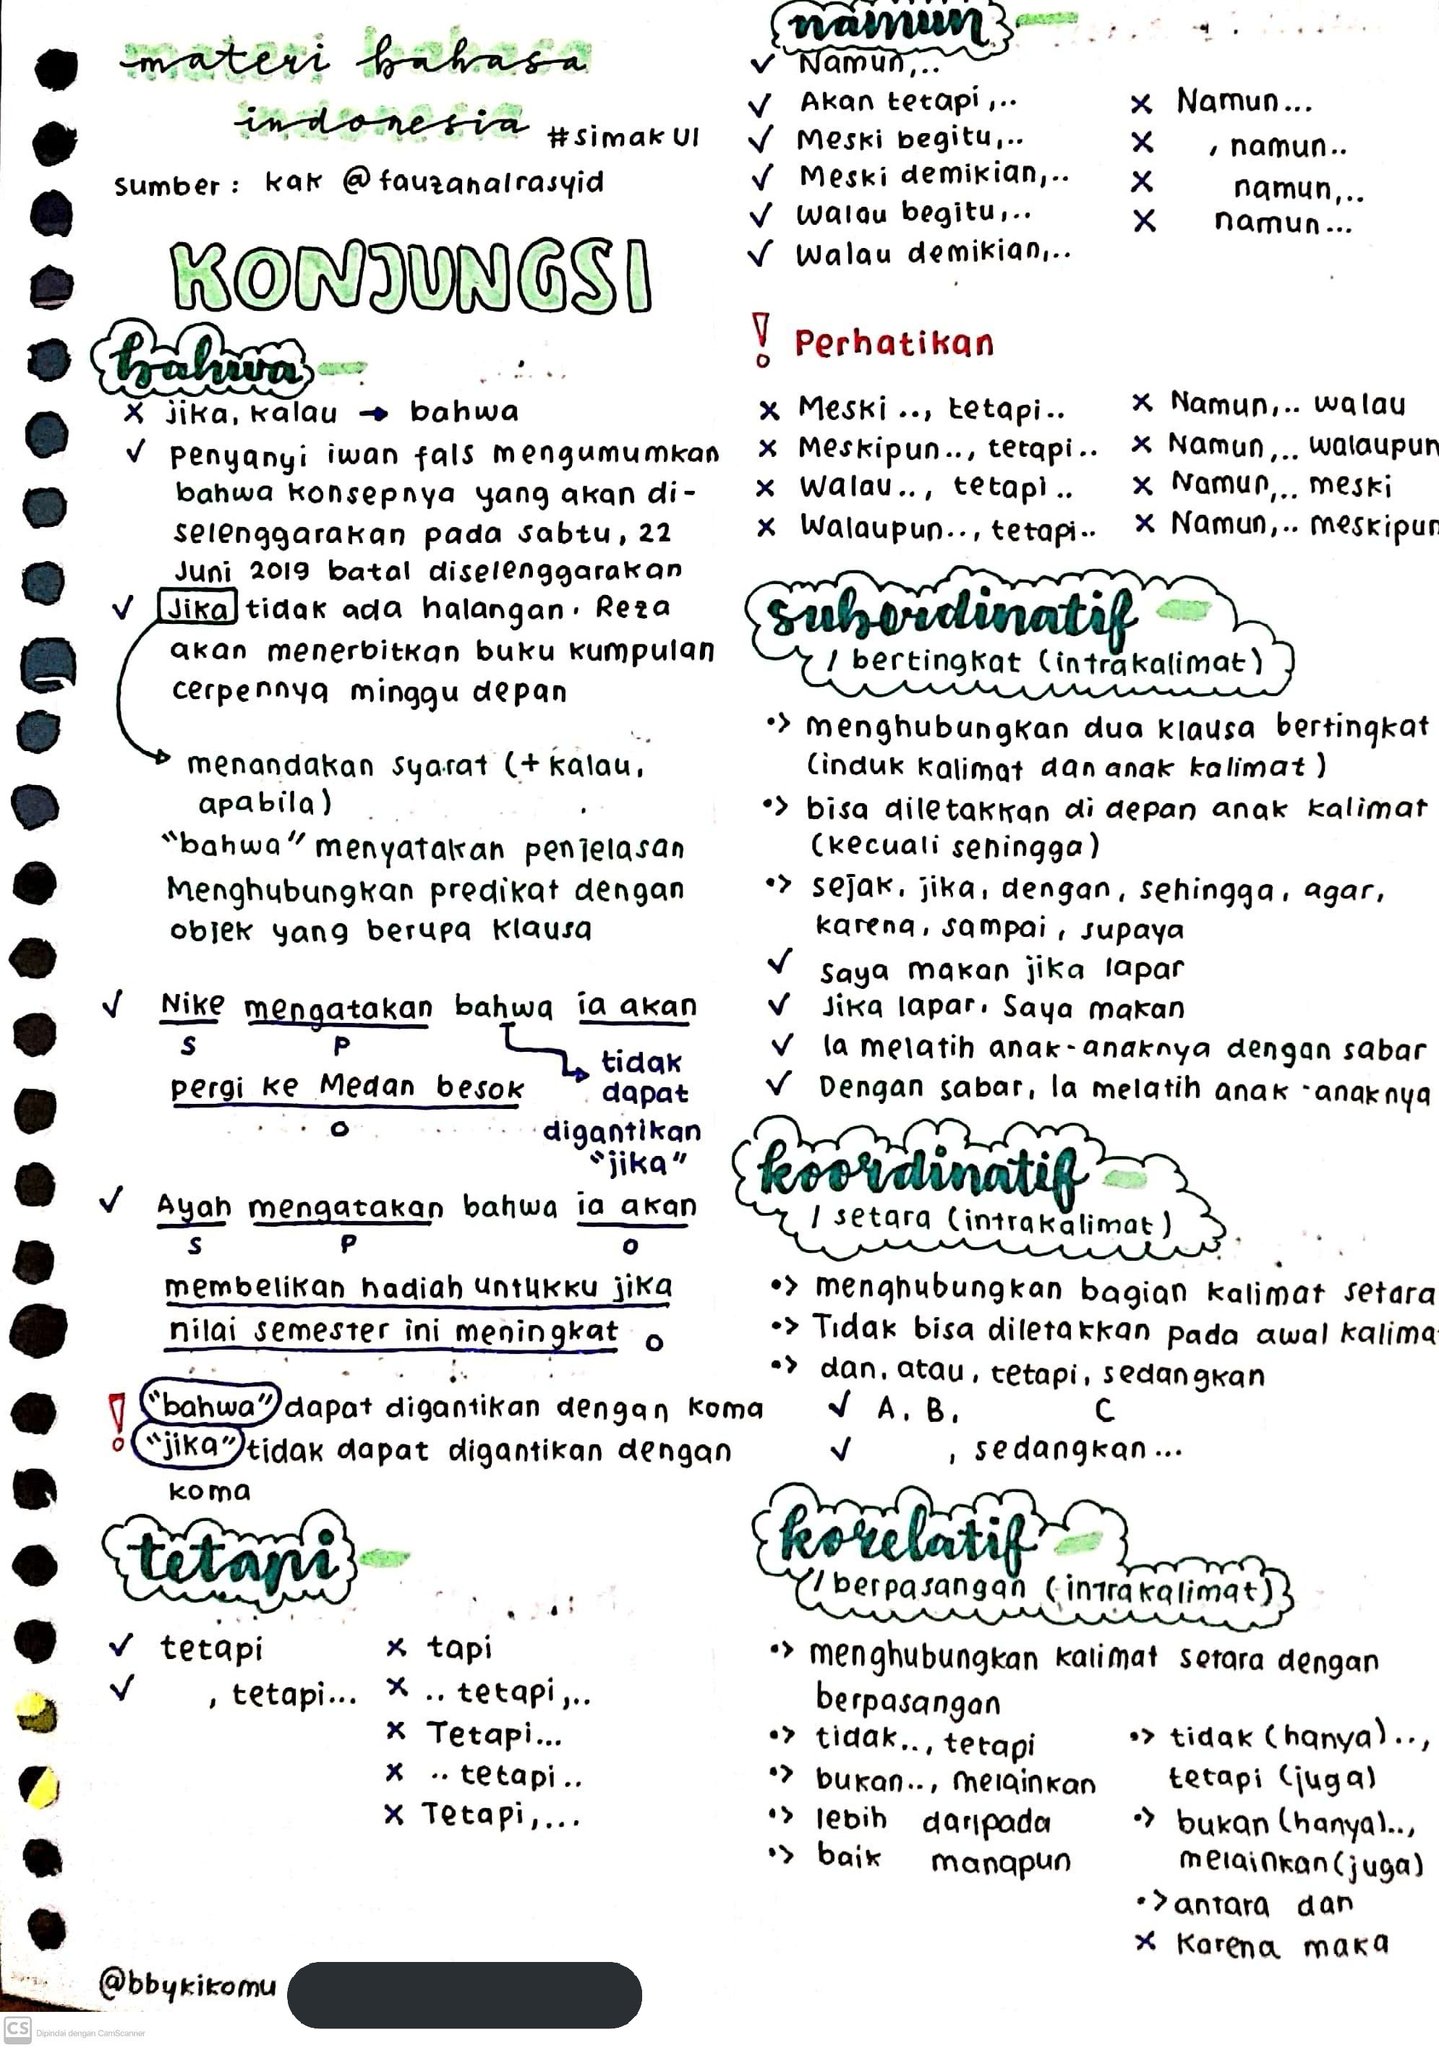 materi bahasa
indonesia #simak UI
sumber: kak @fauzanalrasyid
KONJUNGSI
bahwa
x jika, kalau → bahwa
✓ penyanyi iwan fals mengumumkan
bahwa konsepnya yang akan di-
selenggarakan pada sabtu, 22
Juni 2019 batal diselenggarakan
✓ Jika tidak ada halangan, Reza
akan menerbitkan buku kumpulan
cerpennya minggu depan
menandakan syarat (+ kalau,
apabila)
"bahwa" menyatakan penjelasan
Menghubungkan predikat dengan
objek yang berupa klausa
✓ Nike mengatakan bahwa ia akan
S P
pergi ke Medan besok
O
tidak
dapat
digantikan
"jika"
✓ Ayah mengatakan bahwa ia akan
S P O
membelikan hadiah untukku jika
nilai semester ini meningkat O
! "bahwa" dapat digantikan dengan koma
"jika" tidak dapat digantikan dengan
koma
tetapi
✓ tetapi
✓ , tetapi...
x tapi
x .. tetapi,..
x Tetapi...
x .. tetapi..
x Tetapi,...
@bbykikomu
CS Dipindai dengan CamScanner
namun
✓ Namun,..
✓ Akan tetapi,..
✓ Meski begitu,..
✓ Meski demikian,..
✓ Walau begitu,..
✓ Walau demikian,..
x Namun...
x , namun..
x namun,..
x namun...
! Perhatikan
x Meski .., tetapi..
x Meskipun.., tetapi..
x Walau.., tetapi..
x Walaupun.., tetapi..
x Namun,.. walau
x Namun,.. walaupun
x Namun,.. meski
x Namun,.. meskipun
subordinatif
/ bertingkat (intrakalimat)
•> menghubungkan dua klausa bertingkat
(induk kalimat dan anak kalimat)
•> bisa diletakkan di depan anak kalimat
(kecuali sehingga)
•> sejak, jika, dengan, sehingga, agar,
karena, sampai, supaya
✓ Saya makan jika lapar
✓ Jika lapar, Saya makan
✓ Ia melatih anak-anaknya dengan sabar
✓ Dengan sabar, Ia melatih anak-anaknya
koordinatif
/ setara (intrakalimat)
•> menghubungkan bagian kalimat setara
•> Tidak bisa diletakkan pada awal kalima
•> dan, atau, tetapi, sedangkan
✓ A, B, C
✓ , sedangkan...
korelatif
/ berpasangan (intrakalimat)
•> menghubungkan kalimat setara dengan
berpasangan
•> tidak.., tetapi
•> bukan.., melainkan
•> lebih daripada
•> baik manapun
•> tidak (hanya)..,
tetapi (juga)
•> bukan (hanya)..,
melainkan (juga)
•> antara dan
x Karena maka